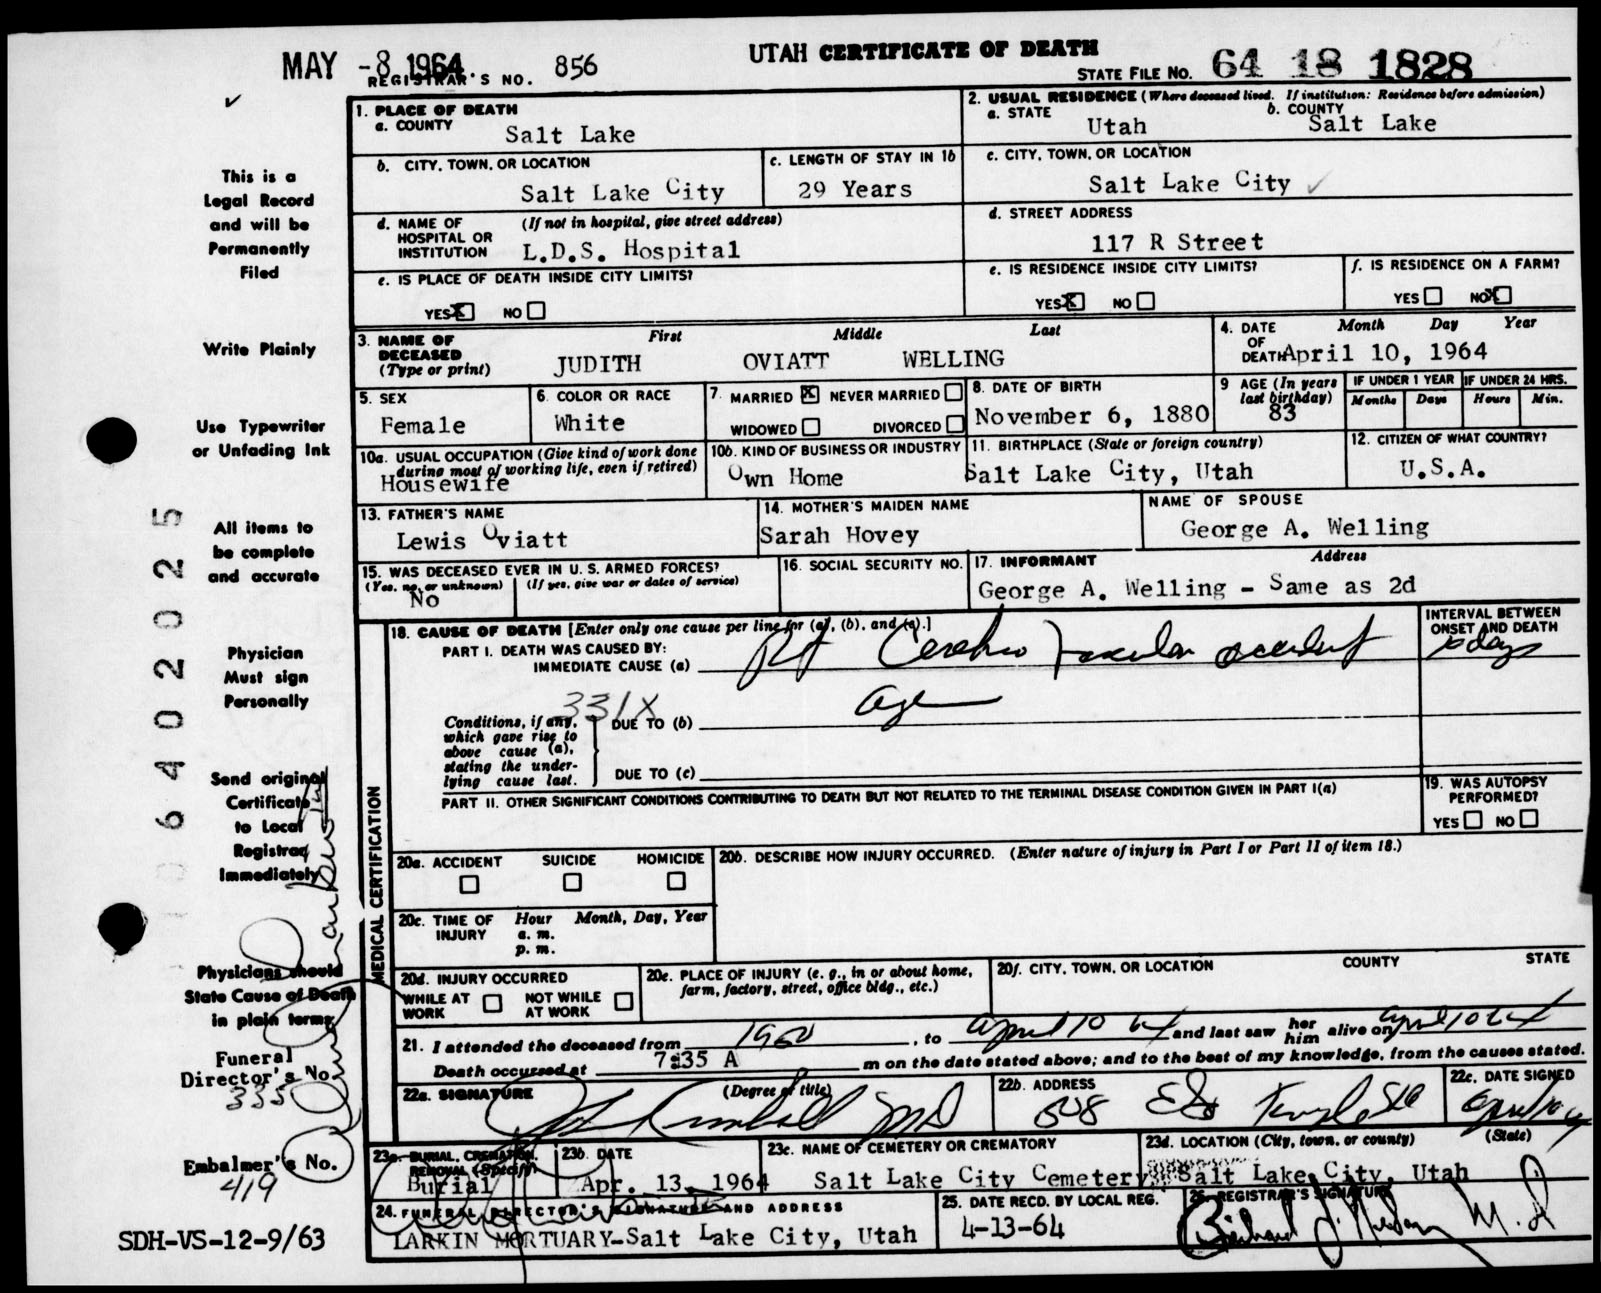 UTAH CERTIFICATE OF DEATH
MAY -8 1964
REGISTRAR'S NO. 856
STATE FILE NO. 64 18 1828
1. PLACE OF DEATH
a. COUNTY
Salt Lake
2. USUAL RESIDENCE (Where deceased lived. If institution: Residence before admission)
a. STATE b. COUNTY
Utah Salt Lake
b. CITY, TOWN, OR LOCATION
Salt Lake City
c. LENGTH OF STAY IN 1b
29 Years
c. CITY, TOWN, OR LOCATION
Salt Lake City ✓
d. NAME OF HOSPITAL OR INSTITUTION (If not in hospital, give street address)
L.D.S. Hospital
d. STREET ADDRESS
117 R Street
e. IS PLACE OF DEATH INSIDE CITY LIMITS?
YES X NO
e. IS RESIDENCE INSIDE CITY LIMITS?
YES X NO
f. IS RESIDENCE ON A FARM?
YES NO X
3. NAME OF DECEASED (Type or print)
First Middle Last
JUDITH OVIATT WELLING
4. DATE OF DEATH Month Day Year
April 10, 1964
5. SEX
Female
6. COLOR OR RACE
White
7. MARRIED X NEVER MARRIED
WIDOWED DIVORCED
8. DATE OF BIRTH
November 6, 1880
9 AGE (In years last birthday)
83
IF UNDER 1 YEAR
Months Days
IF UNDER 24 HRS.
Hours Min.
10a. USUAL OCCUPATION (Give kind of work done during most of working life, even if retired)
Housewife
10b. KIND OF BUSINESS OR INDUSTRY
Own Home
11. BIRTHPLACE (State or foreign country)
Salt Lake City, Utah
12. CITIZEN OF WHAT COUNTRY?
U.S.A.
13. FATHER'S NAME
Lewis Oviatt
14. MOTHER'S MAIDEN NAME
Sarah Hovey
NAME OF SPOUSE
George A. Welling
15. WAS DECEASED EVER IN U. S. ARMED FORCES?
(Yes, no, or unknown) (If yes, give war or dates of service)
No
16. SOCIAL SECURITY NO.
17. INFORMANT Address
George A. Welling - Same as 2d
MEDICAL CERTIFICATION
18. CAUSE OF DEATH [Enter only one cause per line for (a), (b), and (c).]
INTERVAL BETWEEN ONSET AND DEATH
PART I. DEATH WAS CAUSED BY:
IMMEDIATE CAUSE (a) Rt Cerebro Vascular accident
days
331X
Conditions, if any, which gave rise to above cause (a), stating the underlying cause last.
DUE TO (b) age
DUE TO (c)
PART II. OTHER SIGNIFICANT CONDITIONS CONTRIBUTING TO DEATH BUT NOT RELATED TO THE TERMINAL DISEASE CONDITION GIVEN IN PART I(a)
19. WAS AUTOPSY PERFORMED?
YES NO
20a. ACCIDENT SUICIDE HOMICIDE
20b. DESCRIBE HOW INJURY OCCURRED. (Enter nature of injury in Part I or Part II of item 18.)
20c. TIME OF INJURY
Hour Month, Day, Year
a. m.
p. m.
20d. INJURY OCCURRED
WHILE AT WORK NOT WHILE AT WORK
20e. PLACE OF INJURY (e. g., in or about home, farm, factory, street, office bldg., etc.)
20f. CITY, TOWN, OR LOCATION COUNTY STATE
21. I attended the deceased from 1960, to April 10 64 and last saw her him alive on April 10 64
Death occurred at 7:35 A m on the date stated above; and to the best of my knowledge, from the causes stated.
22a. SIGNATURE (Degree or title)
Kimball MD
22b. ADDRESS
508 E So Temple SLC
22c. DATE SIGNED
April 10 64
23a. BURIAL, CREMATION, REMOVAL (Specify)
Burial
23b. DATE
Apr. 13, 1964
23c. NAME OF CEMETERY OR CREMATORY
Salt Lake City Cemetery
23d. LOCATION (City, town, or county) (State)
Salt Lake City, Utah
24. FUNERAL DIRECTOR'S SIGNATURE AND ADDRESS
LARKIN MORTUARY-Salt Lake City, Utah
25. DATE RECD. BY LOCAL REG.
4-13-64
26. REGISTRAR'S SIGNATURE
Richard M.D.
✓
This is a
Legal Record
and will be
Permanently
Filed
Write Plainly
Use Typewriter
or Unfading Ink
All items to
be complete
and accurate
Physician
Must sign
Personally
Send original
Certificate
to Local
Registrar
Immediately
Physicians should
State Cause of Death
in plain terms
Funeral
Director's No.
335
Embalmer's No.
419
SDH-VS-12-9/63
0 6 4 0 2 0 2 5